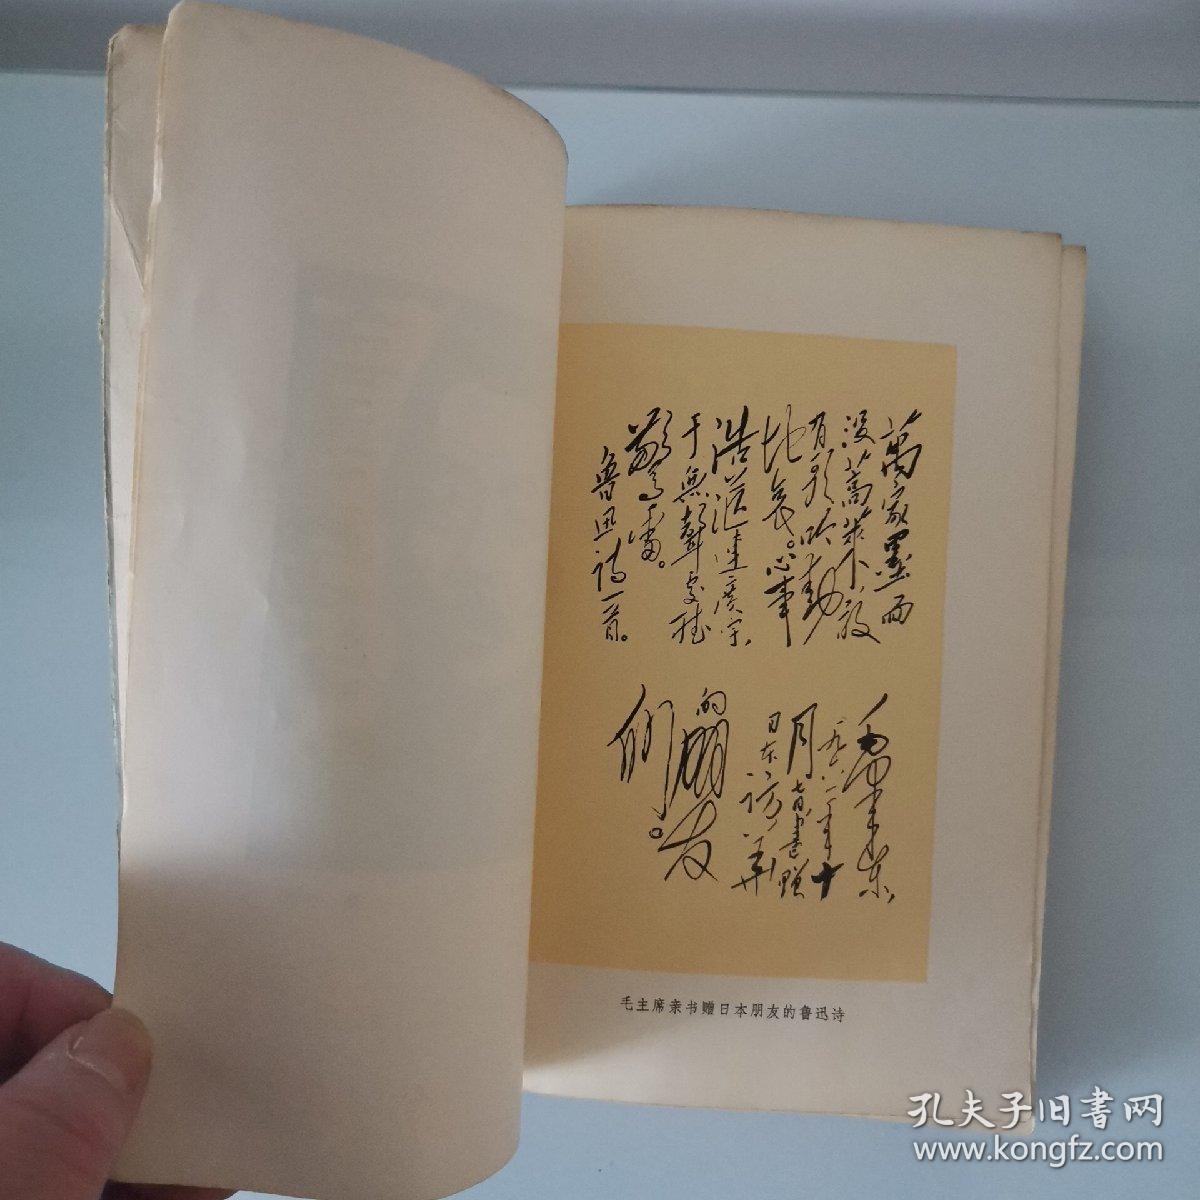 萬家墨面
沒蒿萊，敢
有歌吟動
地哀。心事
浩茫連廣宇，
于無聲處聽
驚雷。
魯迅詩一首。
毛澤東
一九六一年十
月七日書贈
日本訪華
的朋友
们。
毛主席亲书赠日本朋友的鲁迅诗
孔夫子旧書网
www.kongfz.com